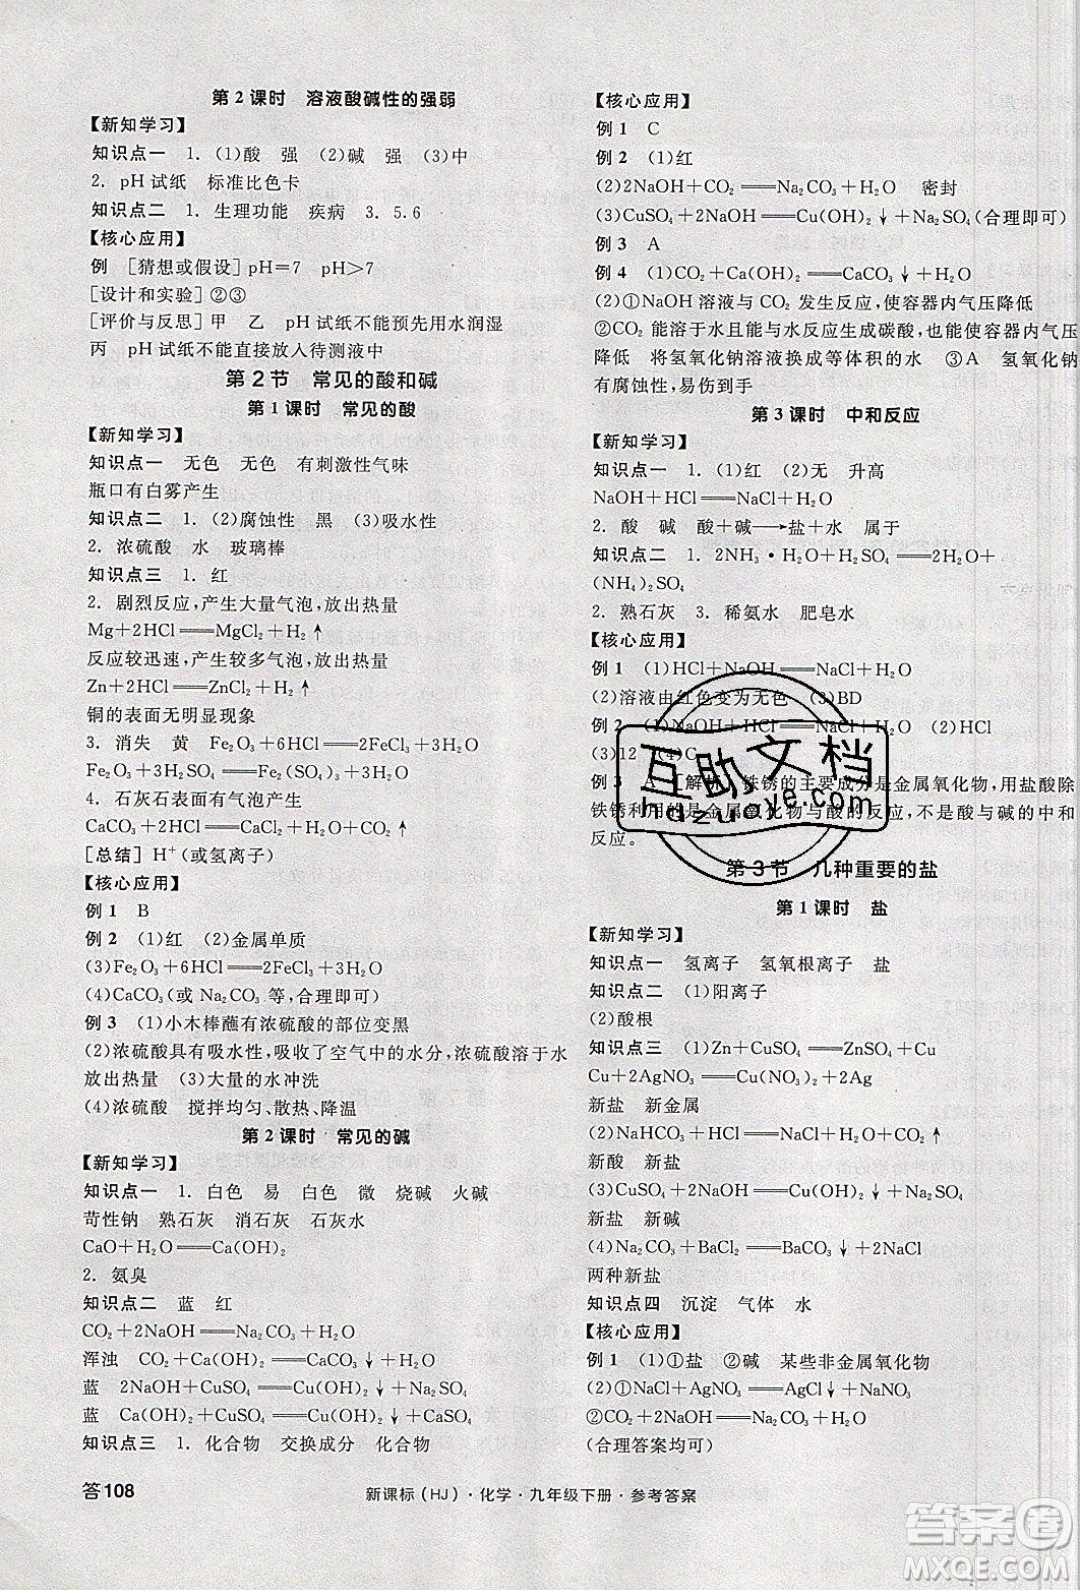 第2课时 溶液酸碱性的强弱
【新知学习】
知识点一 1. (1)酸 强 (2)碱 强 (3)中
2. pH试纸 标准比色卡
知识点二 1. 生理功能 疾病 3. 5.6
【核心应用】
例 [猜想或假设] pH=7 pH>7
[设计和实验] ②③
[评价与反思] 甲 乙 pH试纸不能预先用水润湿
丙 pH试纸不能直接放入待测液中
第2节 常见的酸和碱
第1课时 常见的酸
【新知学习】
知识点一 无色 无色 有刺激性气味
瓶口有白雾产生
知识点二 1. (2)腐蚀性 黑 (3)吸水性
2. 浓硫酸 水 玻璃棒
知识点三 1. 红
2. 剧烈反应,产生大量气泡,放出热量
Mg+2HCl══MgCl₂+H₂↑
反应较迅速,产生较多气泡,放出热量
Zn+2HCl══ZnCl₂+H₂↑
铜的表面无明显现象
3. 消失 黄 Fe₂O₃+6HCl══2FeCl₃+3H₂O
Fe₂O₃+3H₂SO₄══Fe₂(SO₄)₃+3H₂O
4. 石灰石表面有气泡产生
CaCO₃+2HCl══CaCl₂+H₂O+CO₂↑
[总结] H⁺(或氢离子)
【核心应用】
例1 B
例2 (1)红 (2)金属单质
(3)Fe₂O₃+6HCl══2FeCl₃+3H₂O
(4)CaCO₃(或Na₂CO₃等,合理即可)
例3 (1)小木棒蘸有浓硫酸的部位变黑
(2)浓硫酸具有吸水性,吸收了空气中的水分,浓硫酸溶于水
放出热量 (3)大量的水冲洗
(4)浓硫酸 搅拌均匀、散热、降温
第2课时 常见的碱
【新知学习】
知识点一 1. 白色 易 白色 微 烧碱 火碱
苛性钠 熟石灰 消石灰 石灰水
CaO+H₂O══Ca(OH)₂
2. 氨臭
知识点二 蓝 红
CO₂+2NaOH══Na₂CO₃+H₂O
浑浊 CO₂+Ca(OH)₂══CaCO₃↓+H₂O
蓝 2NaOH+CuSO₄══Cu(OH)₂↓+Na₂SO₄
蓝 Ca(OH)₂+CuSO₄══Cu(OH)₂↓+CaSO₄
知识点三 1. 化合物 交换成分 化合物
答108
【核心应用】
例1 C
例2 (1)红
(2)2NaOH+CO₂══Na₂CO₃+H₂O 密封
(3)CuSO₄+2NaOH══Cu(OH)₂↓+Na₂SO₄(合理即可)
例3 A
例4 (1)CO₂+Ca(OH)₂══CaCO₃↓+H₂O
(2)①NaOH溶液与CO₂发生反应,使容器内气压降低
②CO₂能溶于水且能与水反应生成碳酸,也能使容器内气压
降低 将氢氧化钠溶液换成等体积的水 ③A 氢氧化钠
有腐蚀性,易伤到手
第3课时 中和反应
【新知学习】
知识点一 1. (1)红 (2)无 升高
NaOH+HCl══NaCl+H₂O
2. 酸 碱 酸+碱─→盐+水 属于
知识点二 1. 2NH₃·H₂O+H₂SO₄══2H₂O+
(NH₄)₂SO₄
2. 熟石灰 3. 稀氨水 肥皂水
【核心应用】
例1 (1)HCl+NaOH══NaCl+H₂O
(2)溶液由红色变为无色 (3)BD
例2 (1)NaOH+HCl══NaCl+H₂O (2)HCl
(3)12 (4)C
例3 A [解析] 铁锈的主要成分是金属氧化物,用盐酸除
铁锈利用的是金属氧化物与酸的反应,不是酸与碱的中和
反应。
第3节 几种重要的盐
第1课时 盐
【新知学习】
知识点一 氢离子 氢氧根离子 盐
知识点二 (1)阳离子
(2)酸根
知识点三 (1)Zn+CuSO₄══ZnSO₄+Cu
Cu+2AgNO₃══Cu(NO₃)₂+2Ag
新盐 新金属
(2)Na₂CO₃+2HCl══2NaCl+H₂O+CO₂↑
新酸 新盐
(3)CuSO₄+2NaOH══Cu(OH)₂↓+Na₂SO₄
新盐 新碱
(4)Na₂CO₃+BaCl₂══BaCO₃↓+2NaCl
两种新盐
知识点四 沉淀 气体 水
【核心应用】
例1 (1)①盐 ②碱 某些非金属氧化物
(2)①NaCl+AgNO₃══AgCl↓+NaNO₃
②CO₂+2NaOH══Na₂CO₃+H₂O
(合理答案均可)
新课标(HJ)·化学·九年级下册·参考答案
互助文档
huzuoye.com
答案圈
MXQE.COM